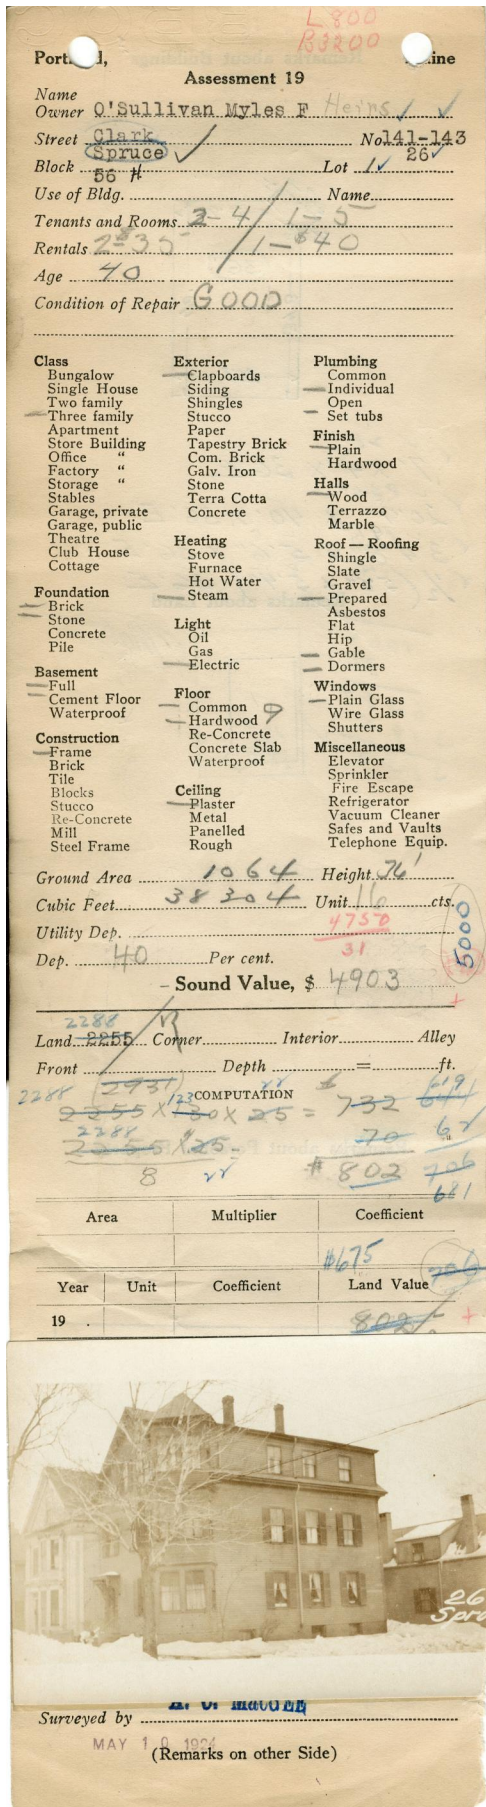 L 800
B3200
Portland, Maine
Assessment 19
Name
Owner O'Sullivan Myles F Heirs ✓ ✓
Street Clark No 141-143
Spruce ✓ 26 ✓
Block 56 H Lot 1 ✓
Use of Bldg. Name
Tenants and Rooms 2-4 / 1-5
Rentals 2-$35 / 1-$40
Age 40
Condition of Repair GOOD
Class
Bungalow
Single House
Two family
Three family
Apartment
Store Building
Office "
Factory "
Storage "
Stables
Garage, private
Garage, public
Theatre
Club House
Cottage
Foundation
Brick
Stone
Concrete
Pile
Basement
Full
Cement Floor
Waterproof
Construction
Frame
Brick
Tile
Blocks
Stucco
Re-Concrete
Mill
Steel Frame
Exterior
Clapboards
Siding
Shingles
Stucco
Paper
Tapestry Brick
Com. Brick
Galv. Iron
Stone
Terra Cotta
Concrete
Heating
Stove
Furnace
Hot Water
Steam
Light
Oil
Gas
Electric
Floor
Common
Hardwood
Re-Concrete
Concrete Slab
Waterproof
Ceiling
Plaster
Metal
Panelled
Rough
Plumbing
Common
Individual
Open
Set tubs
Finish
Plain
Hardwood
Halls
Wood
Terrazzo
Marble
Roof — Roofing
Shingle
Slate
Gravel
Prepared
Asbestos
Flat
Hip
Gable
Dormers
Windows
Plain Glass
Wire Glass
Shutters
Miscellaneous
Elevator
Sprinkler
Fire Escape
Refrigerator
Vacuum Cleaner
Safes and Vaults
Telephone Equip.
Ground Area 1064 Height 36'
Cubic Feet 38304 Unit 16 cts.
Utility Dep. 4750
31
5000
Dep. 40 Per cent.
Sound Value, $ 4903
2288
Land 2255 Corner Interior Alley
Front Depth = ft.
COMPUTATION
2288 2255 X 130 X 25 = 732
123
2288
2255 X 25 = 70 62
8 $802 706
681
Area Multiplier Coefficient
$675
Year Unit Coefficient Land Value
706
19 . 802
26
Spru
Surveyed by
MAY 1 1924
(Remarks on other Side)